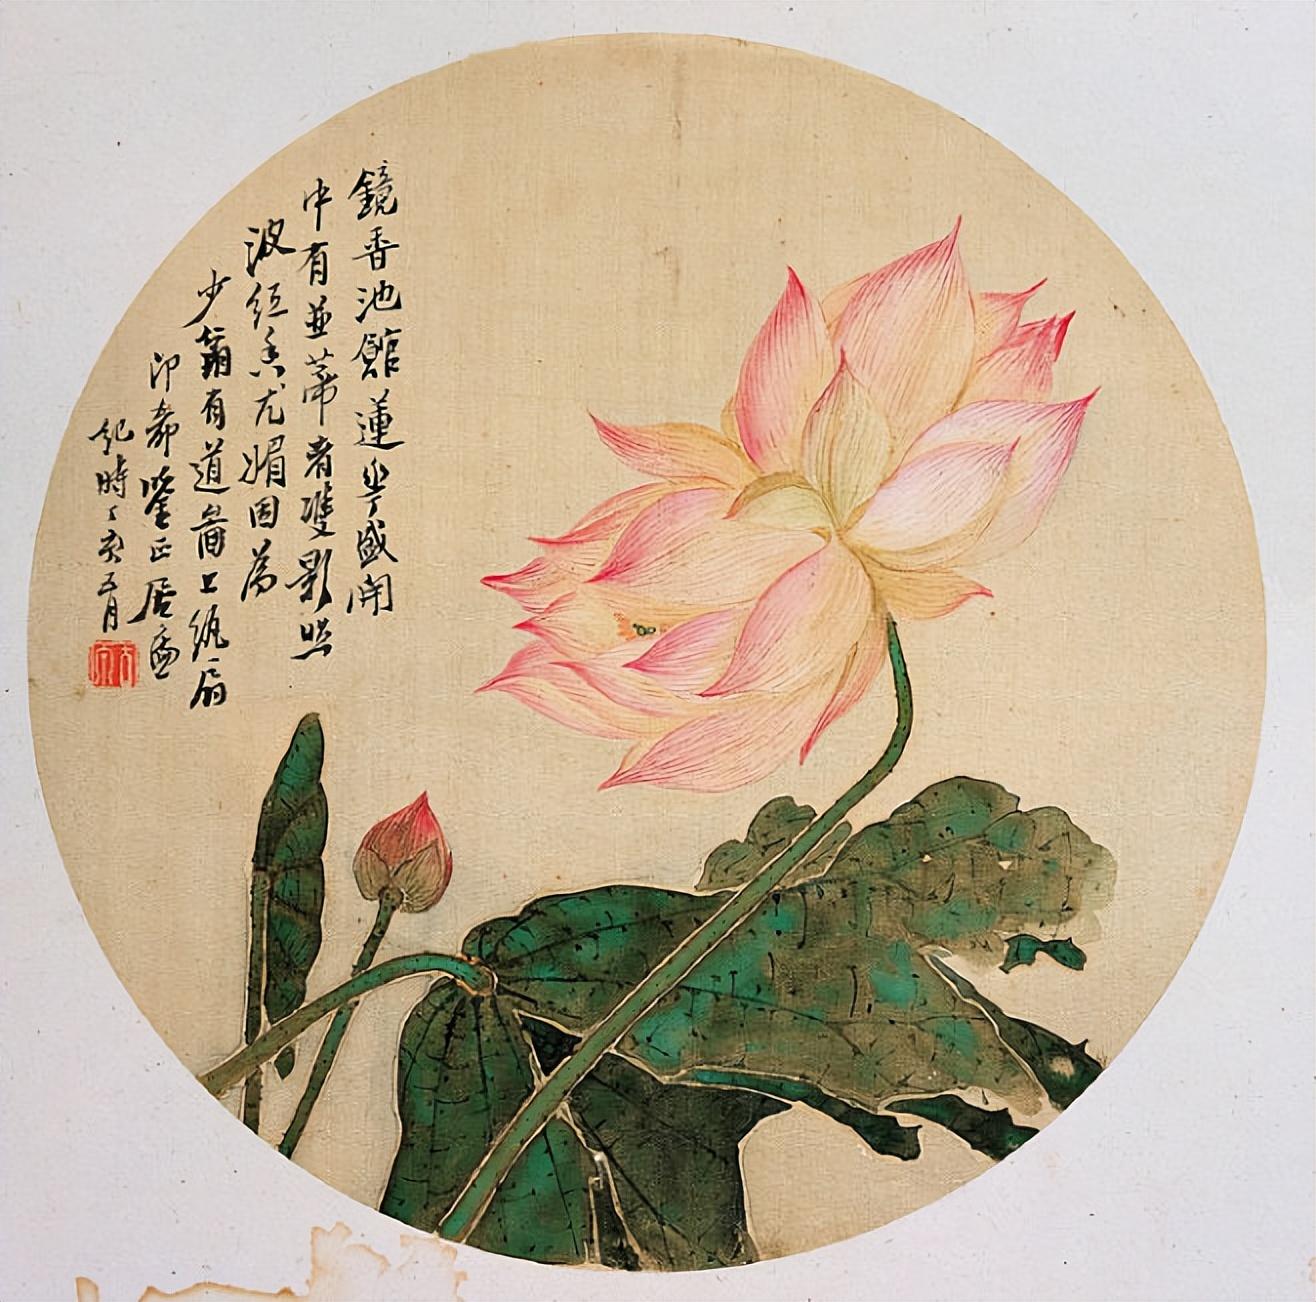 鏡香池館蓮華盛開
中有並蒂者雙影照
波紅香尤媚因為
少翁有道圖之紈扇
即希鑒正居廉
紀時丁亥五月